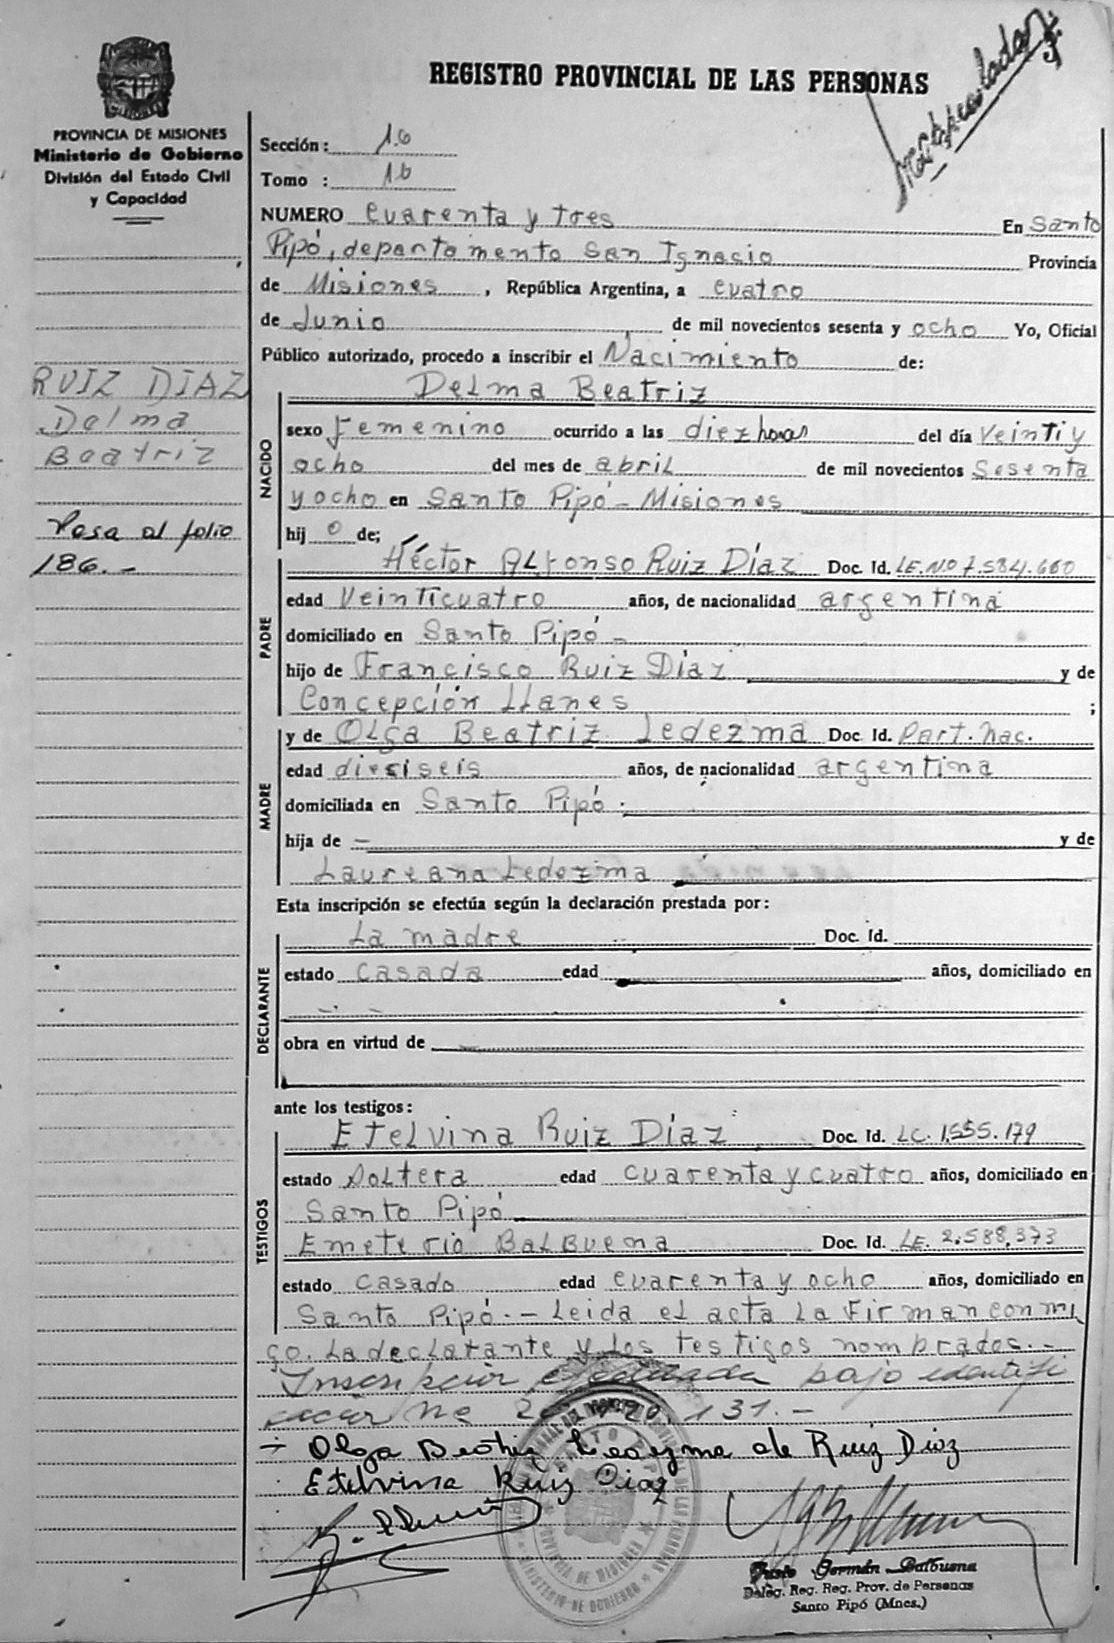 REGISTRO PROVINCIAL DE LAS PERSONAS
PROVINCIA DE MISIONES
Ministerio de Gobierno
División del Estado Civil
y Capacidad
RUIZ DIAZ
Delma
Beatriz
Pasa al folio
186.-
Sección: 1.6
Tomo : 16
NUMERO cuarenta y tres En Santo
Pipó, departamento San Ignacio Provincia
de Misiones, República Argentina, a cuatro
de Junio de mil novecientos sesenta y ocho Yo, Oficial
Público autorizado, procedo a inscribir el Nacimiento de:
NACIDO
Delma Beatriz
sexo Femenino ocurrido a las diez horas del día veinti y
ocho del mes de abril de mil novecientos sesenta
y ocho en Santo Pipó - Misiones
hij o de;
PADRE
Héctor Alfonso Ruiz Díaz Doc. Id. LE. Nº 7.584.660
edad veinticuatro años, de nacionalidad argentina
domiciliado en Santo Pipó -
hijo de Francisco Ruiz Díaz y de
Concepción Llanes ;
MADRE
y de Olga Beatriz Ledezma Doc. Id. Part. Nac.
edad dieciseis años, de nacionalidad argentina
domiciliada en Santo Pipó.
hija de - y de
Laureana Ledezma
Esta inscripción se efectúa según la declaración prestada por:
DECLARANTE
La madre Doc. Id.
estado casada edad años, domiciliado en
obra en virtud de
ante los testigos:
TESTIGOS
Etelvina Ruiz Díaz Doc. Id. LC. 1.555.179
estado Soltera edad cuarenta y cuatro años, domiciliado en
Santo Pipó
Emeterio Balbuena Doc. Id. LE. 2.588.373
estado casado edad cuarenta y ocho años, domiciliado en
Santo Pipó.- Leida el acta la Firman conmi
go. La declarante y los testigos nombrados.-
Inscripcion efectuada bajo identifi
cacion Nº 131.-
Olga Beatriz Ledezma de Ruiz Diaz
Etelvina Ruiz Diaz
Justo Germán Balbuena
Deleg. Reg. Reg. Prov. de Personas
Santo Pipó (Mnes.)